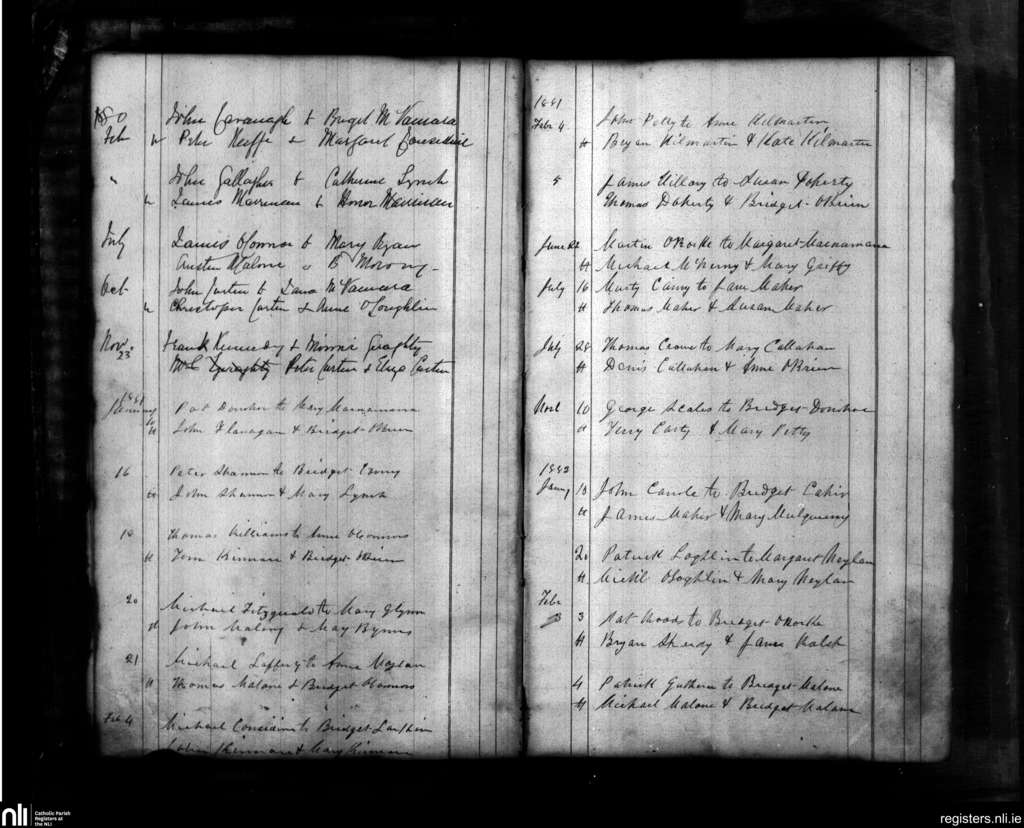 1880
John Cavanagh to Briget McNamara
Feb Peter Keeffe & Margaret Considine
" John Gallagher to Catherine Lynch
James Marrinan to Honor Marrinan
July James O'Connor to Mary Ryan
Austin Malone B Morony
Oct John Curtin to McNamara
Christopher Curtin & Anne O'Loughlin
Nov 23 Frank Kennedy & Minnie Geraghty
Peter Curtin & Eliza Curtin
1881
January Pat Donohoe to Mary Macnamara
John Flanagan & Bridget OBrien
16 Peter Shannon to Bridget
John Shannon & Mary Lynch
18 Thomas Williams to Anne OConnors
Tom Kinnane & Bridget OBrien
20 Michael Fitzgerald to Mary Glynn
John & Mary Byrnes
21 Michael Laffey to Anne
Thomas Malone & Bridget OConnors
Feb 4 Michael Considine to Bridget Larkin
John Kinnane & Mary Kinnane
1881
Febr 4 John Petty to Anne Kilmartin
Bryan Kilmartin & Kate Kilmartin
5 James Hillary to Susan Doherty
Thomas Doherty & Bridget OBrien
June 22 Martin ORorke to Margaret Macnamara
Michael & Mary Griffy
July 16 Murty to Jane Maher
Thomas Maher & Susan Maher
July 28 Thomas Crowe to Mary Callahan
Denis Callahan & Anne OBrien
10 George Scales to Bridget Donohoe
Terry Carty & Mary Petty
1882
13 John to Bridget Cahir
James Maher & Mary Mulqueeny
20 Patrick Loghlin to Margaret Neylan
OLoghlin & Mary Neylan
Febr
3 Pat Woods to Bridget ORorke
Bryan & James Walsh
4 Patrick to Bridget Malone
Michael Malone & Bridget Malone
nli
Catholic Parish
Registers at
the NLI
registers.nli.ie